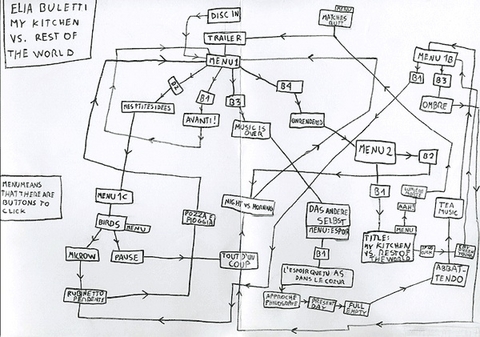 ELIA BULETTI
MY KITCHEN
VS. REST OF
THE WORLD
DISC IN
TRAILER
MENU1
MENU
MATCHES
B2
B1
B3
B4
MES PTITES IDÉES
AVANTI!
MUSIC IS
OVER
MENU 1B
B1
B3
OMBRE
MENU 2
B2
B1
MENU MEANS
THAT THERE ARE
BUTTONS TO
CLICK
MENU1C
BIRDS
MENU
MICROW
PAUSE
RUBINETTO
PENDENTE
POZZA E
PIOGGIA
NIGHT VS MORNING
TOUT D'UN
COUP
DAS ANDERE
SELBST
MENU: ESPOIR
B1
L'ESPOIR QU'TU AS
DANS LE COEUR
APPROCHE
PRESENT
DAY
FULL
EMPTY
AAH!
MENU
TITLE:
MY KITCHEN
VS REST OF
THE WORLD
TEA
MUSIC
ABBAT-
TENDO